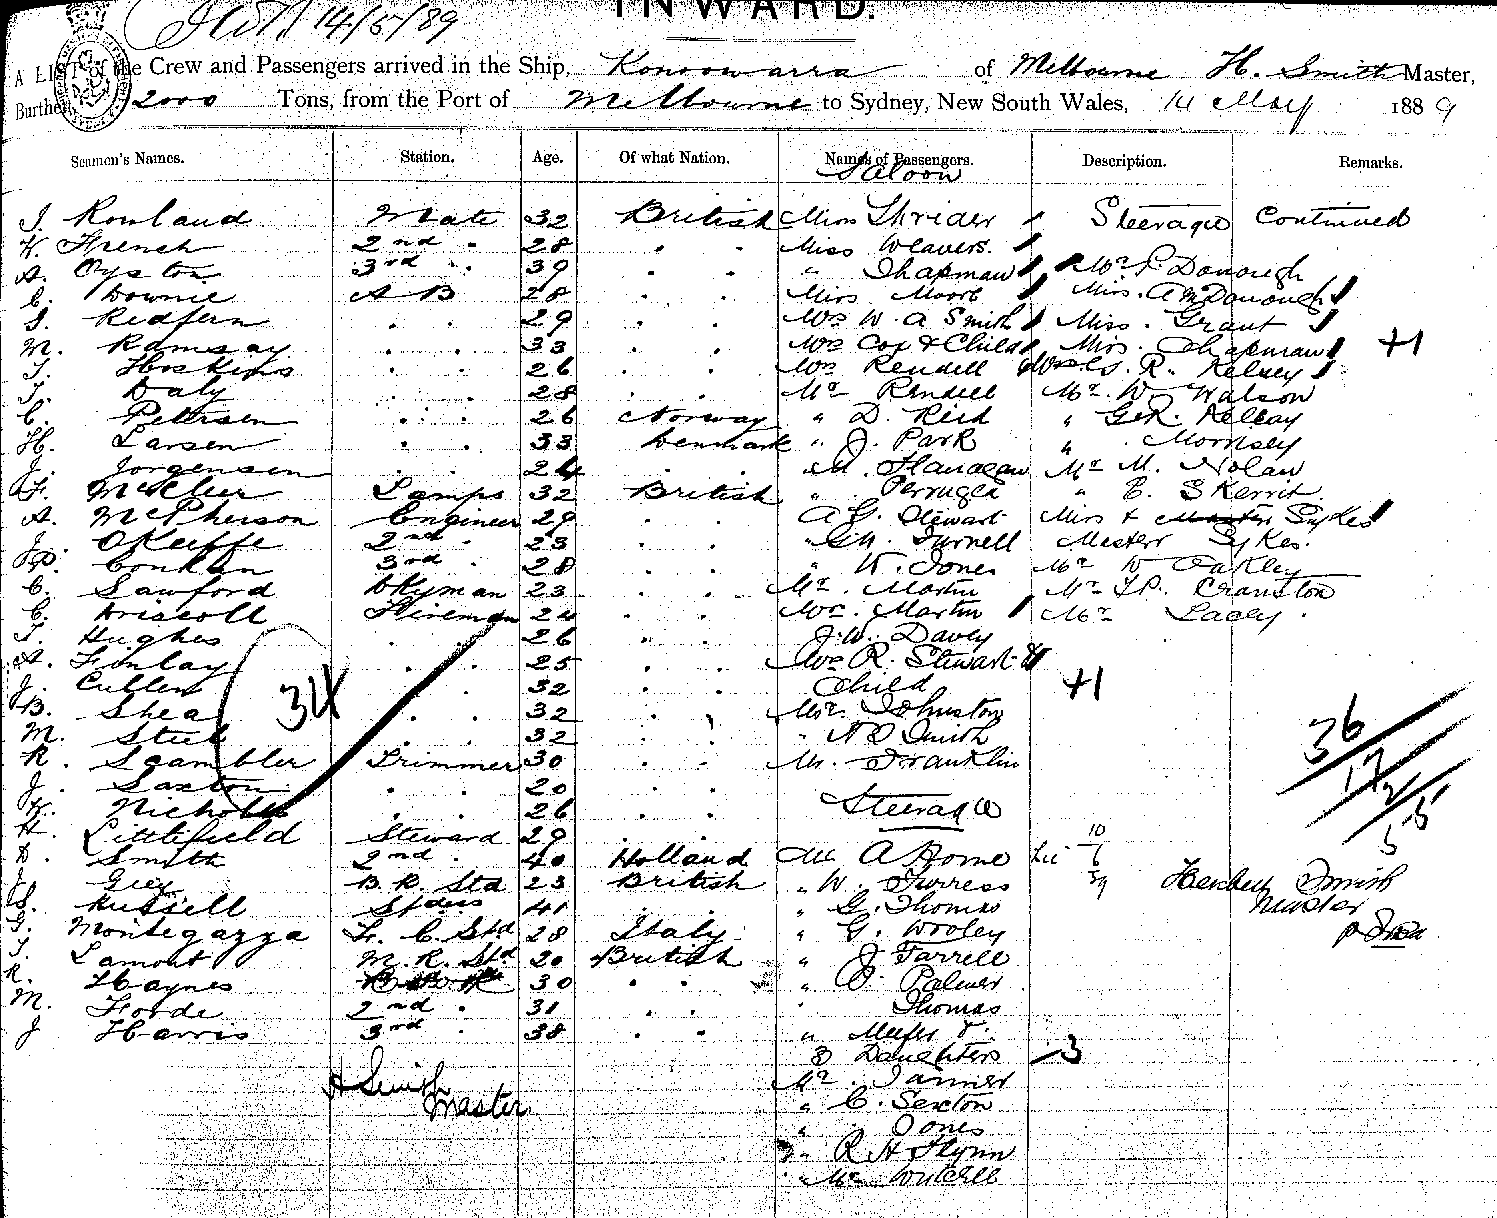 INWARD.
14/5/89
A LIST of the Crew and Passengers arrived in the Ship, Konoowarra of Melbourne H. Smith Master,
Burthen 2000 Tons, from the Port of Melbourne to Sydney, New South Wales, 14 May 1889
Seamen's Names. Station. Age. Of what Nation. Names of Passengers. Description. Remarks.
Saloon
J. Rowland Mate 32 British Miss Shrider Steerage Continued
W. French 2nd " 28 " " Miss Weavers.
A. Oyston 3rd " 39 " " " Chapman Mr P Donough
C. Downie A B 28 " " Miss Moore Mrs. A McDonough
S. Redfern " " 29 " " Mrs W. A Smith Miss. Grant
M. Ramsay " " 33 " " Mrs Cox & Child Mrs. Chapman +1
T. Hoskins " " 26 " " Mrs Rendell R. Kelsey
T. Daly " " 28 " " Mr Rendell Mr. W Watson
C. Petersen " " 26 Norway " D. Reid " G.R. Kelsay
H. Larsen " " 33 Denmark " J. Park " Mornsey
J. Jorgensen " " 24 " " M. Flanagan Mr M. Nolan
F. McCleer Lamps 32 British " Perrugea " E. Skerrit
A. McPherson Engineer 29 " " A G. Stewart Mrs & Master Sykes
J. O'Keiffe 2nd " 23 " " " Furnell Master Sykes.
P. Conlon 3rd " 28 " " " W. Jones Mr W Oakley
C. Sawford Dkyman 23 " " Mr. Martin Mr Cranston
C. Driscoll Fireman 24 " " Mrs. Martin Mr Lacey
T. Hughes " " 26 " " J. W. Davey
A. Finlay " " 25 " " Mrs R. Stewart &
J. Cullen " " 32 " " Child +1
B. Shea " " 32 " " Mr. Johnston
34
M. Steel " " 32 " " " Smith
36
R. Scambler Trimmer 30 " " M. Franklin
17
J. Saxton " " 20
2
W. Nicholls " " 26 " " Steerage
55
H. Littlefield Steward 29 " " 10
D. Smith 2nd " 40 Holland Mr A Horne 6
J. Grey B. R. Std 23 British " W. Furress 59 Herbert Smith
S. Russell Stdess 41 " " " G. Thomas Master
G. Montegazza F. C. Std 28 Italy " G. Wooley
T. Lamont M. R. Std 20 British " J Farrell
R. Haynes 30 " " " J. Palmer
M. Forde 2nd " 31 " " " Thomas
J Harris 3rd " 38 " " "
3 Daughters 3
H Smith Mr. Tanner
Master " C. Sexton
" Jones
" R H Flynn
" Mr